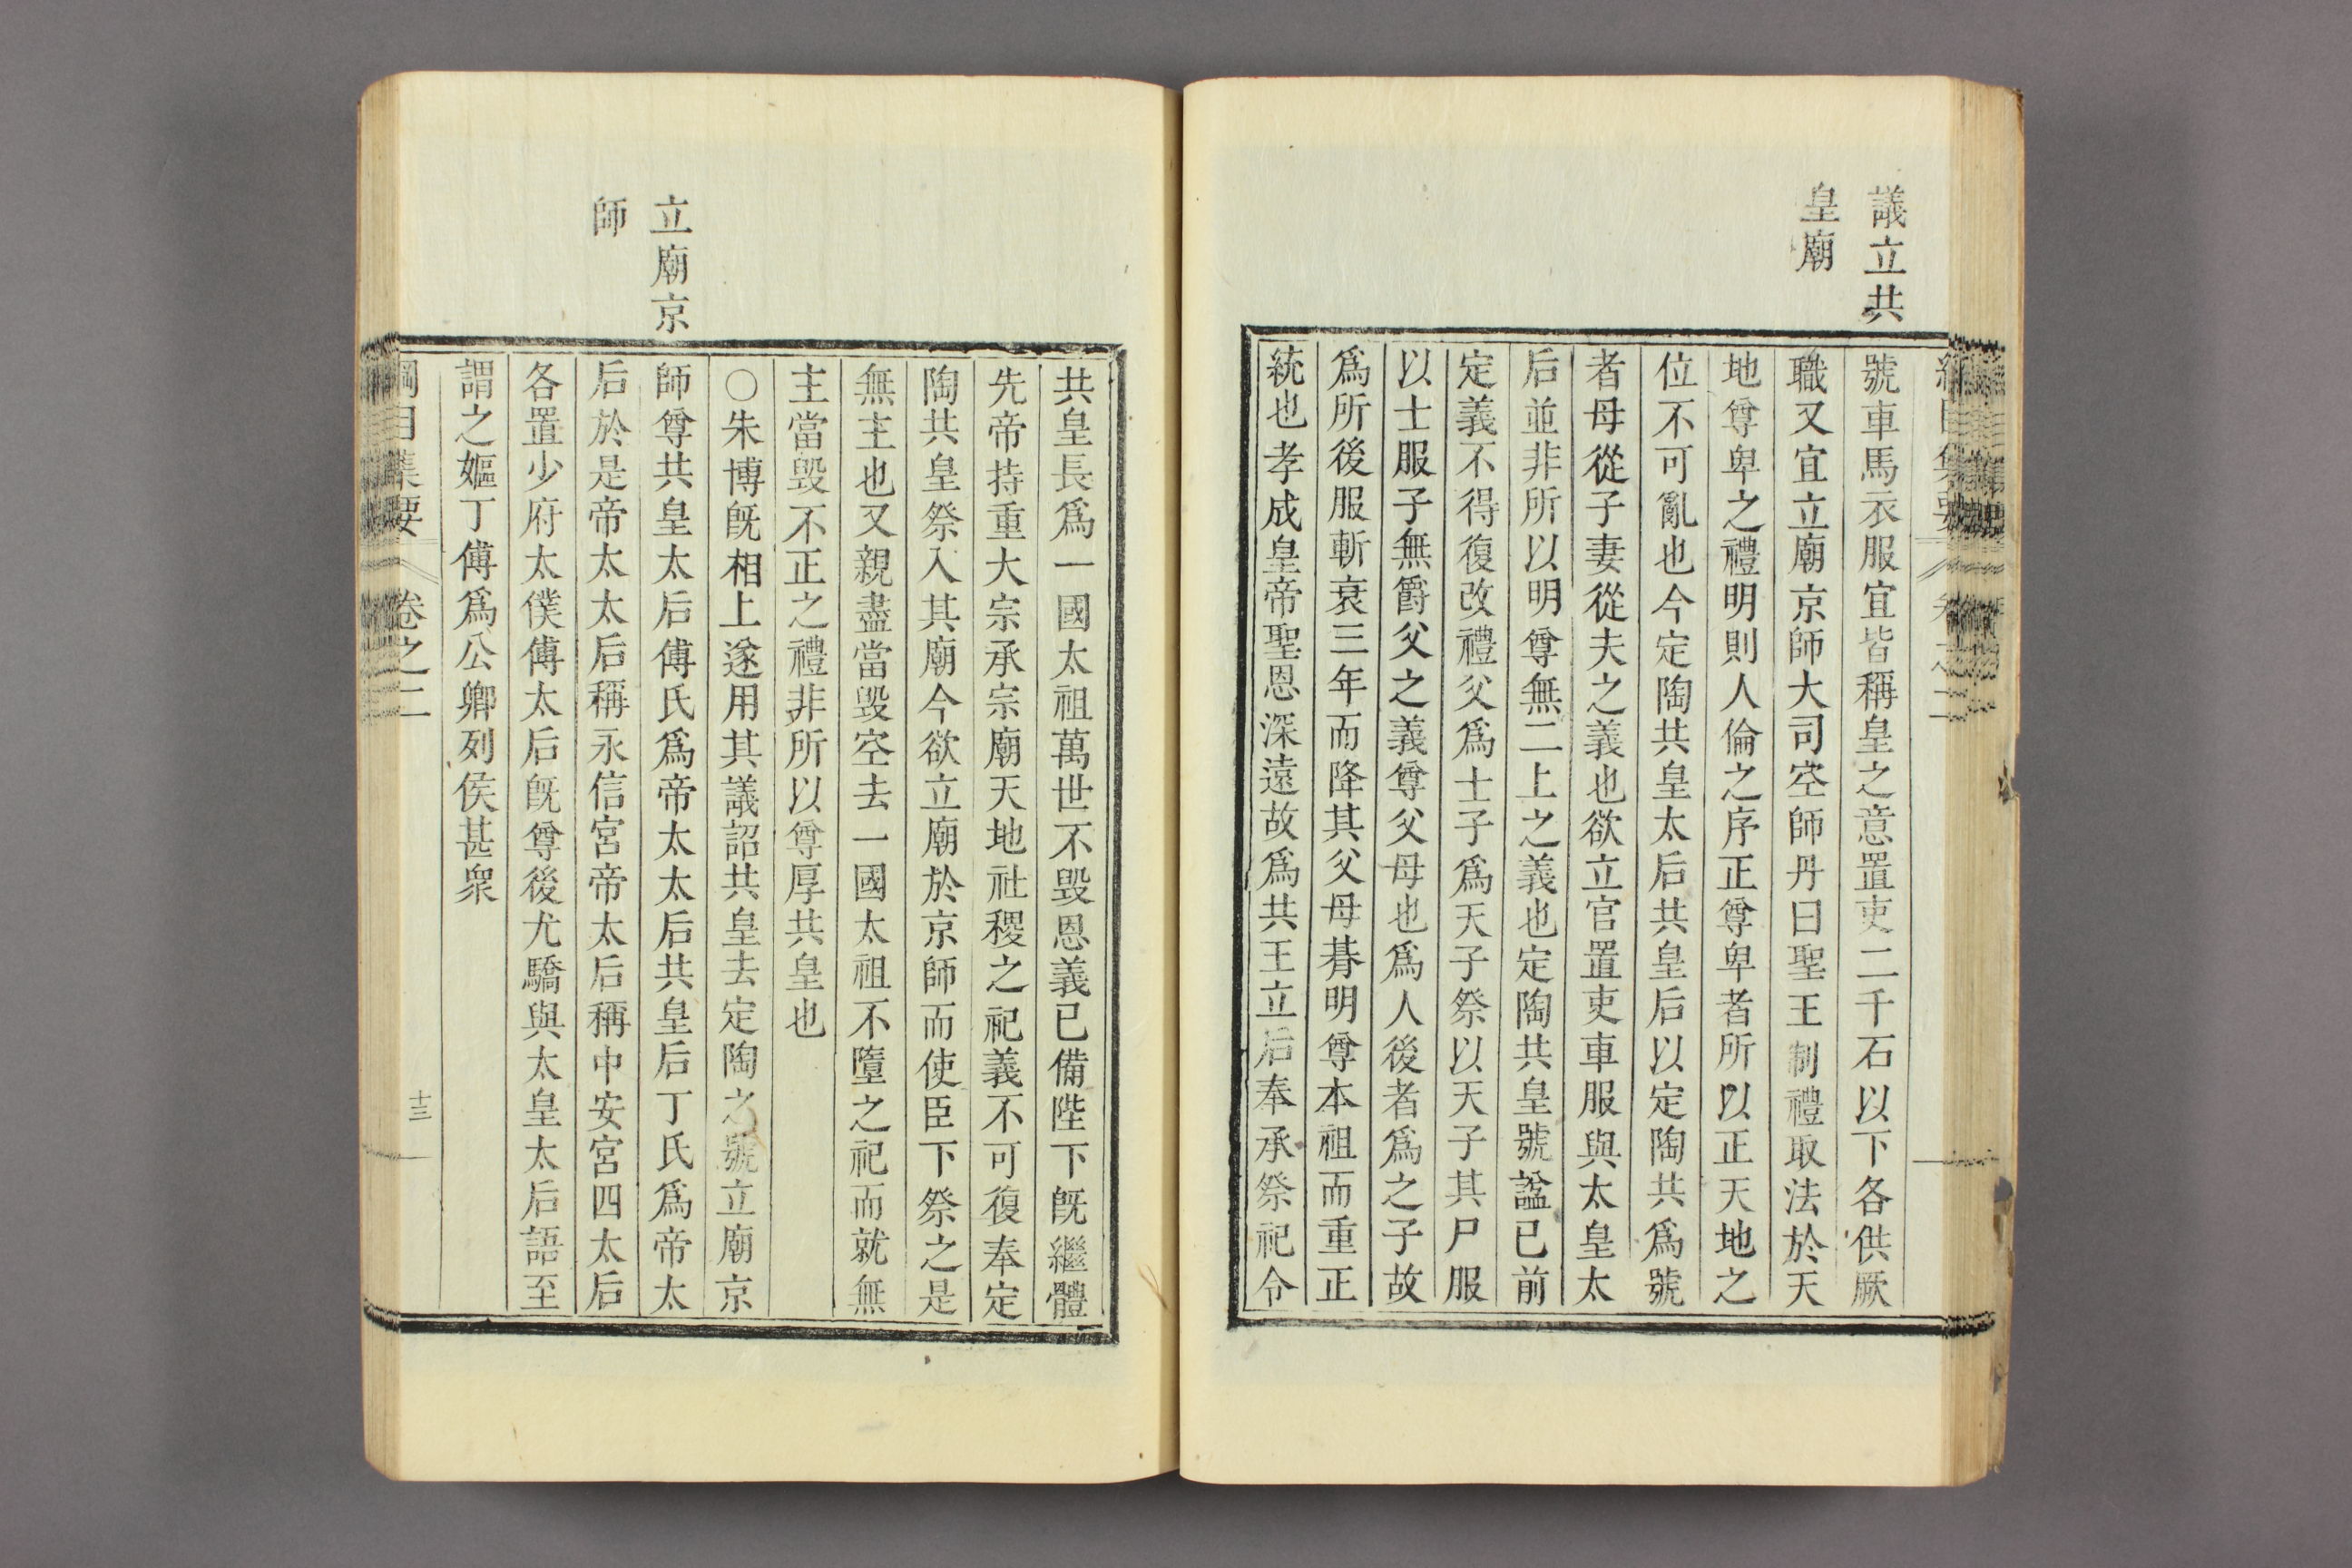 議立共
皇廟
號車馬衣服宜皆稱皇之意置吏二千石以下各供厥
職又宜立廟京師大司空師丹曰聖王制禮取法於天
地尊卑之禮明則人倫之序正尊卑者所以正天地之
位不可亂也今定陶共皇太后共皇后以定陶共爲號
者母從子妻從夫之義也欲立官置吏車服與太皇太
后並非所以明尊無二上之義也定陶共皇號諡已前
定義不得復改禮父爲士子爲天子祭以天子其尸服
以士服子無爵父之義尊父母也爲人後者爲之子故
爲所後服斬衰三年而降其父母朞明尊本祖而重正
統也孝成皇帝聖恩深遠故爲共王立后奉承祭祀令
共皇長爲一國太祖萬世不毀恩義已備陛下旣繼體
先帝持重大宗承宗廟天地社稷之祀義不可復奉定
陶共皇祭入其廟今欲立廟於京師而使臣下祭之是
無主也又親盡當毀空去一國太祖不墮之祀而就無
主當毀不正之禮非所以尊厚共皇也
○朱博旣相上遂用其議詔共皇去定陶之號立廟京
立廟京
師
師尊共皇太后傅氏爲帝太太后共皇后丁氏爲帝太
后於是帝太太后稱永信宮帝太后稱中安宮四太后
各置少府太僕傅太后旣尊後尤驕與太皇太后語至
謂之嫗丁傅爲公卿列侯甚衆
綱目集要 卷之二 十三